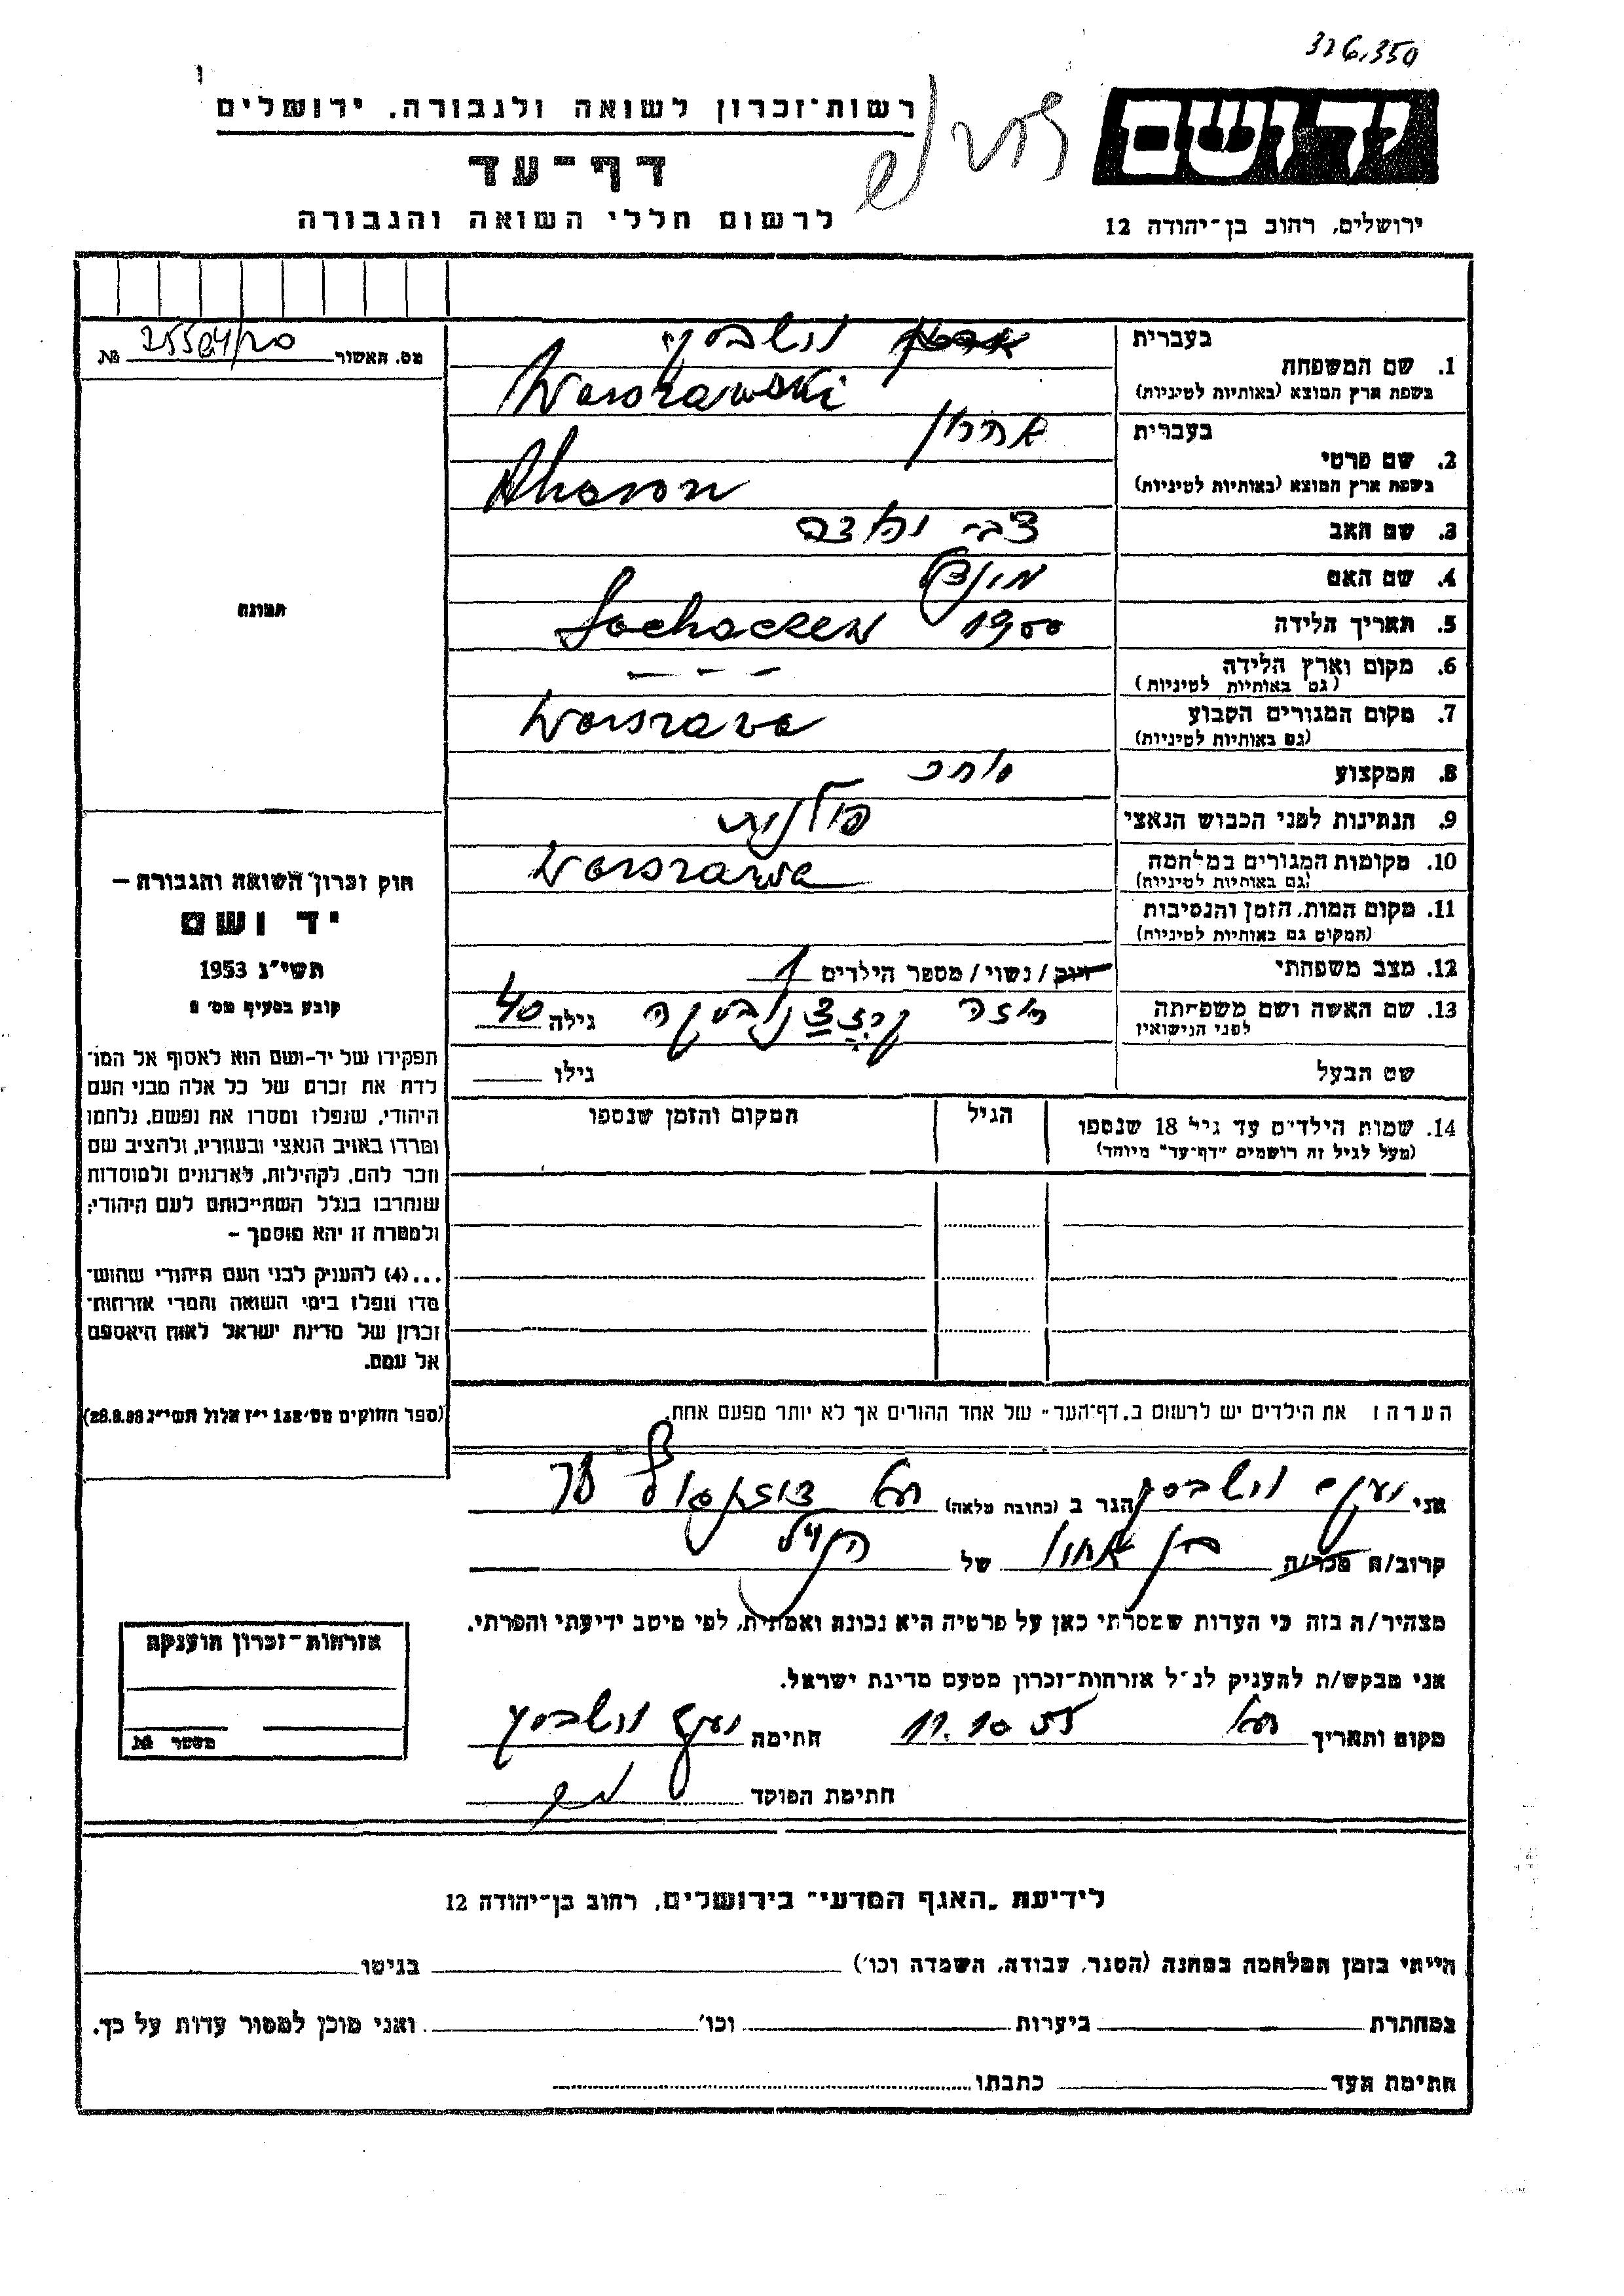 326.350
יד ושם
ירושלים, רחוב בן־יהודה 12
רשות־זכרון לשואה ולגבורה, ירושלים
דף־עד
לרשום חללי השואה והגבורה
מס. האשור №
1. שם המשפחה
בעברית ורשבסקי
בשפת ארץ המוצא (באותיות לטיניות) Warszawski
2. שם פרטי
בעברית אהרון
בשפת ארץ המוצא (באותיות לטיניות) Aharon
3. שם האב צבי
4. שם האם
5. תאריך הלידה 1900 Sochaczew
6. מקום וארץ הלידה
(גם באותיות לטיניות) — — —
7. מקום המגורים הקבוע
(גם באותיות לטיניות) Warszava
8. המקצוע סוחר
9. הנתינות לפני הכבוש הנאצי פולנית
10. מקומות המגורים במלחמה
(גם באותיות לטיניות) Warszawa
11. מקום המות, הזמן והנסיבות
(המקום גם באותיות לטיניות)
12. מצב משפחתי רווק / נשוי / מספר הילדים 1
13. שם האשה ושם משפחתה
לפני הנישואין גילה 40
שם הבעל גילו
14. שמות הילדים עד גיל 18 שנספו
(מעל לגיל זה רושמים "דף־עד" מיוחד)
הגיל
המקום והזמן שנספו
הערה: את הילדים יש לרשום ב„דף־העד" של אחד ההורים אך לא יותר מפעם אחת.
תמונה
חוק זכרון השואה והגבורה –
יד ושם
תשי"ג 1953
קובע בסעיף מס' 2
תפקידו של יד־ושם הוא לאסוף אל המו־
לדת את זכרם של כל אלה מבני העם
היהודי, שנפלו ומסרו את נפשם, נלחמו
ומרדו באויב הנאצי ובעוזריו, ולהציב שם
וזכר להם, לקהילות, לארגונים ולמוסדות
שנחרבו בגלל השתייכותם לעם היהודי;
ולמטרה זו יהא מוסמך –
...(4) להעניק לבני העם היהודי שהוש־
מדו ונפלו בימי השואה והמרי אזרחות־
זכרון של מדינת ישראל לאות היאספם
אל עמם.
(ספר החוקים מס' 132 י"ז אלול תשי"ג 28.8.53)
אני יעקב ורשבסקי הגר ב (כתובת מלאה)
קרוב/ה מכר/ה בן אחון של הנ"ל
מצהיר/ה בזה כי העדות שמסרתי כאן על פרטיה היא נכונה ואמתית, לפי מיטב ידיעתי והכרתי.
אני מבקש/ת להעניק לנ"ל אזרחות־זכרון מטעם מדינת ישראל.
מקום ותאריך 11.10.55 חתימה יעקב ורשבסקי
חתימת הפוקד
אזרחות־זכרון הוענקה
מספר №
לידיעת „האגף המדעי" בירושלים, רחוב בן־יהודה 12
הייתי בזמן המלחמה במחנה (הסגר, עבודה, השמדה וכו') בגיטו
במחתרת ביערות וכו' ואני מוכן למסור עדות על כך.
חתימת העד כתבתו